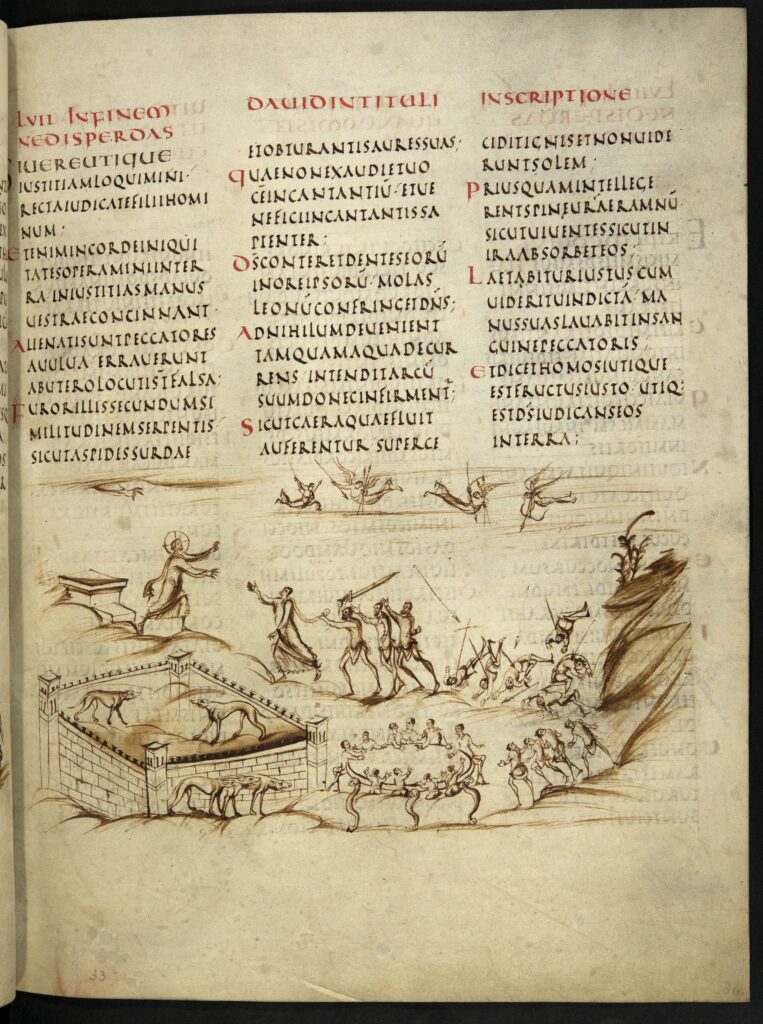 LVII INFINEM
NEDISPERDAS
DAVIDINTITULI
INSCRIPTIONE
SIUEREUTIQUE
IUSTITIAMLOQUIMINI·
RECTAIUDICATEFILIIHOMI
NUM·
ETENIMINCORDEINIQUI
TATESOPERAMINIINTER
RA·INIUSTITIASMANUS
UESTRAECONCINNANT·
ALIENATISUNTPECCATORES
AUULUA·ERRAUERUNT
ABUTEROLOCUTIST̄FALSA·
FURORILLISSECUNDUMSI
MILITUDINEMSERPENTIS
SICUTASPIDISSURDAE
ETOBTURANTISAURESSUAS;
QUAENONEXAUDIETUO
CĒINCANTANTIŪ·ETUE
NEFICIINCANTANTISSA
PIENTER;
DS̄CONTERETDENTESEORŪ
INOREIPSORŪ·MOLAS
LEONŪCONFRINGETDN̄S;
ADNIHILUMDEUENIENT
TAMQUAMAQUADECUR
RENS·INTENDITARCŪ
SUUMDONECINFIRMENT̄;
SICUTCAERAQUAEFLUIT
AUFERENTUR·SUPERCE
CIDITIGNISETNONUIDE
RUNTSOLEM·
PRIUSQUAMINTELLEGE
RENTSPINEURAERAMNŪ·
SICUTUIUENTESSICUTIN
IRAABSORBETEOS·
LAETABITURIUSTUSCUM
UIDERITUINDICTĀ·MA
NUSSUASLAUABITINSAN
GUINEPECCATORIS;
ETDICETHOMOSIUTIQUE
ESTFRUCTUSIUSTO·UTIQ·
ESTDS̄IUDICANSEOS
INTERRA;
33